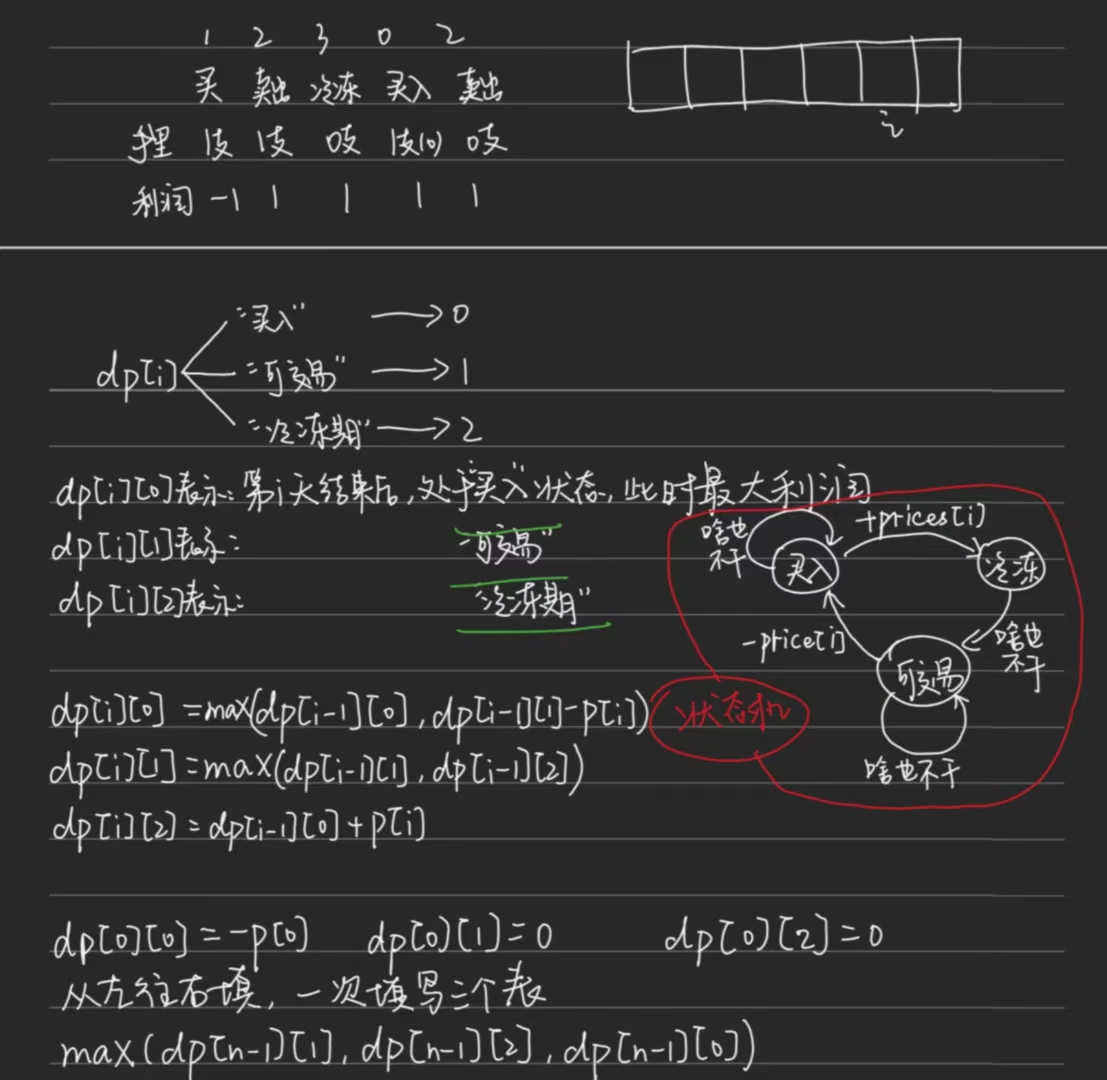 1 2 3 0 2
买 卖出 冷冻 买入 卖出
手里 1支 1支 0支 1支(0) 0支
利润 -1 1 1 1 1
i
dp[i]
"买入" → 0
"可交易" → 1
"冷冻期" → 2
dp[i][0]表示: 第i天结束后, 处于"买入"状态, 此时最大利润
dp[i][1]表示: "可交易"
dp[i][2]表示: "冷冻期"
啥也不干
买入
+prices[i]
冷冻
-price[i]
啥也不干
可交易
啥也不干
状态机
dp[i][0] = max(dp[i-1][0], dp[i-1][1]-p[i])
dp[i][1] = max(dp[i-1][1], dp[i-1][2])
dp[i][2] = dp[i-1][0] + p[i]
dp[0][0] = -p[0] dp[0][1] = 0 dp[0][2] = 0
从左往右填, 一次填写三个表
max(dp[n-1][1], dp[n-1][2], dp[n-1][0])